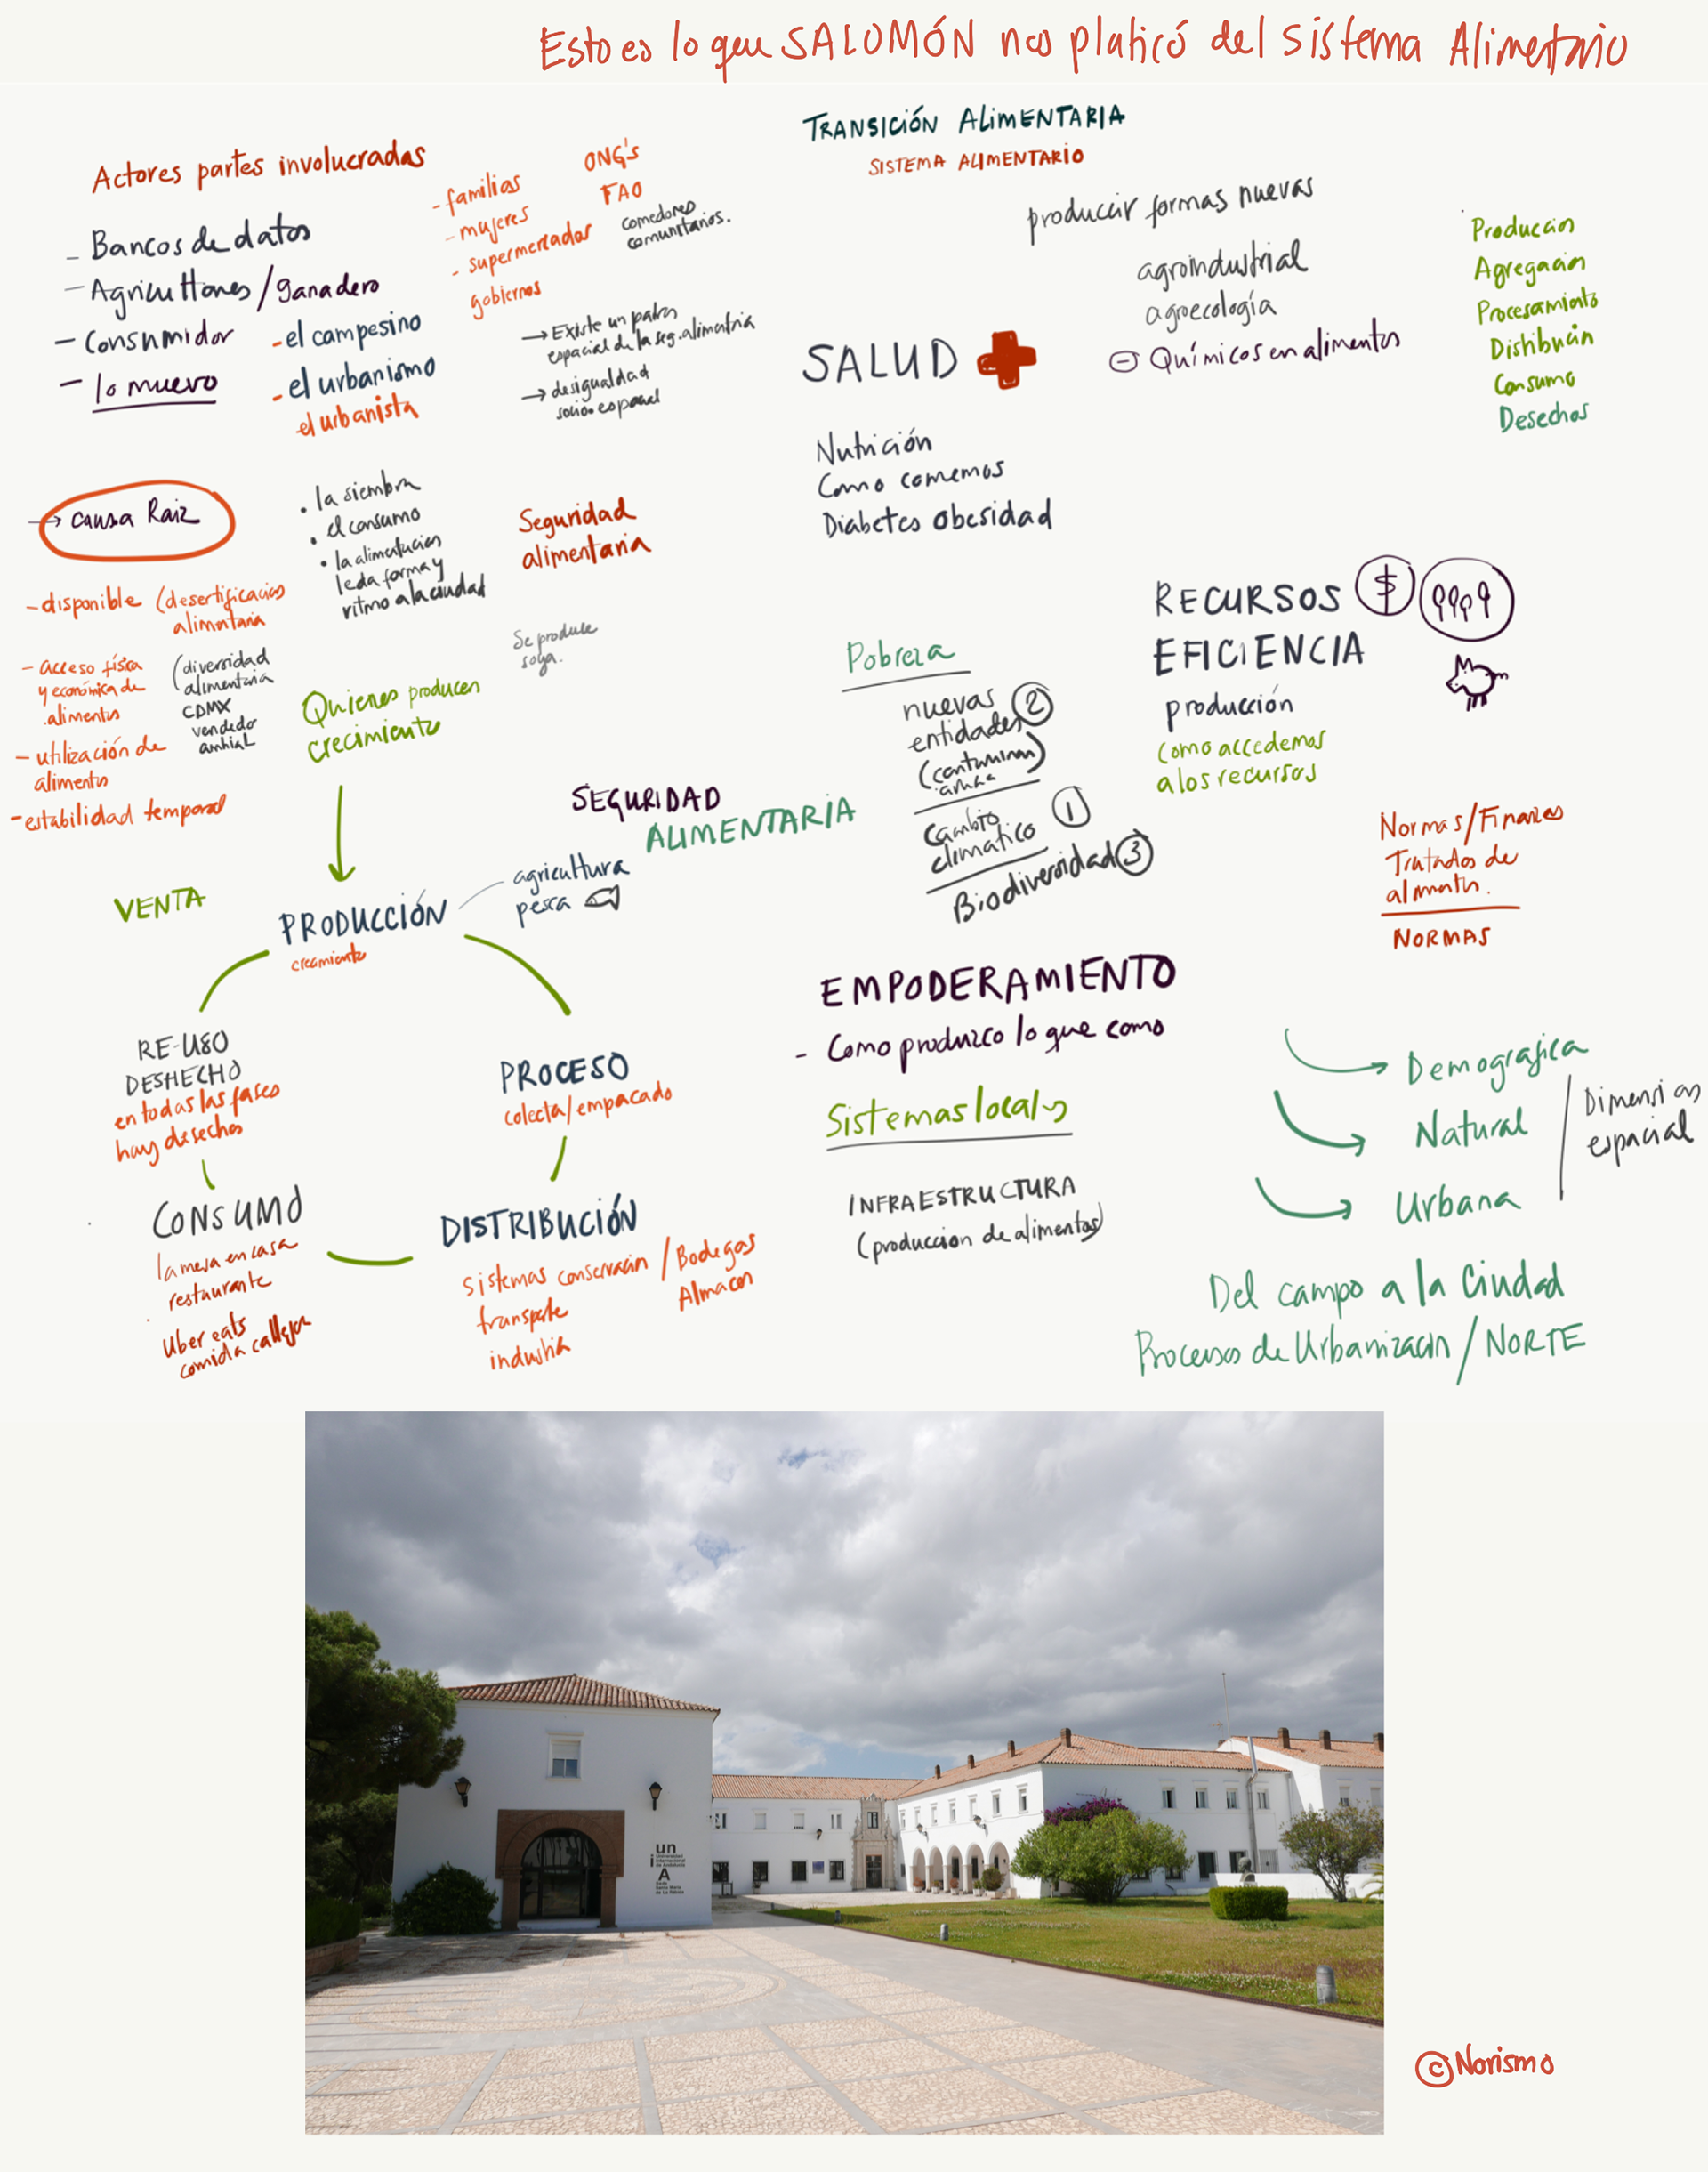 Esto es lo que SALOMÓN nos platicó del sistema Alimentario
Actores partes involucradas
- Bancos de datos
- Agricultores / ganadero
- Consumidor
- lo nuevo
- el campesino
- el urbanismo
el urbanista
- familias
- mujeres
- supermercados
gobiernos
ONG's
FAO
comedores
comunitarios.
→ Existe un patrón
espacial de la seg. alimentaria
→ desigualdad
socio espacial
→ causa Raiz
- disponible (desertificación
alimentaria
- acceso física
y económica de
alimentos
(diversidad
alimentaria
CDMX
vendedor
- utilización de
alimentos
- estabilidad temporal
• la siembra
• el consumo
• la alimentación
le da forma y
ritmo a la ciudad
Seguridad
alimentaria
Se produce
soya.
Quienes producen
crecimiento
SEGURIDAD
ALIMENTARIA
VENTA
PRODUCCIÓN
crecimiento
agricultura
pesca
RE-USO
DESHECHO
en todas las fases
hay desechos
PROCESO
colecta/empacado
CONSUMO
la mesa en casa
restaurante
Uber eats
comida callejera
DISTRIBUCIÓN
sistemas conservación / Bodegas
Almacen
transporte
industria
TRANSICIÓN ALIMENTARIA
SISTEMA ALIMENTARIO
producir formas nuevas
agroindustrial
agroecología
⊖ Químicos en alimentos
Producción
Agregación
Procesamiento
Distribución
Consumo
Desechos
SALUD
Nutrición
Como comemos
Diabetes obesidad
RECURSOS $
EFICIENCIA
producción
como accedemos
a los recursos
Pobreza
nuevas
entidades ②
Cambio
climático ①
Biodiversidad ③
Normas/Finanzas
Tratados de
NORMAS
EMPODERAMIENTO
- Como produzco lo que como
Sistemas locales
INFRAESTRUCTURA
(produccion de alimentos)
Demografica
Natural
Urbana
Dimension
espacial
Del campo a la Ciudad
Procesos de Urbanización / NORTE
un
i
Universidad
Internacional
de Andalucía
A
Sede
Santa María
de La Rábida
© Norismo